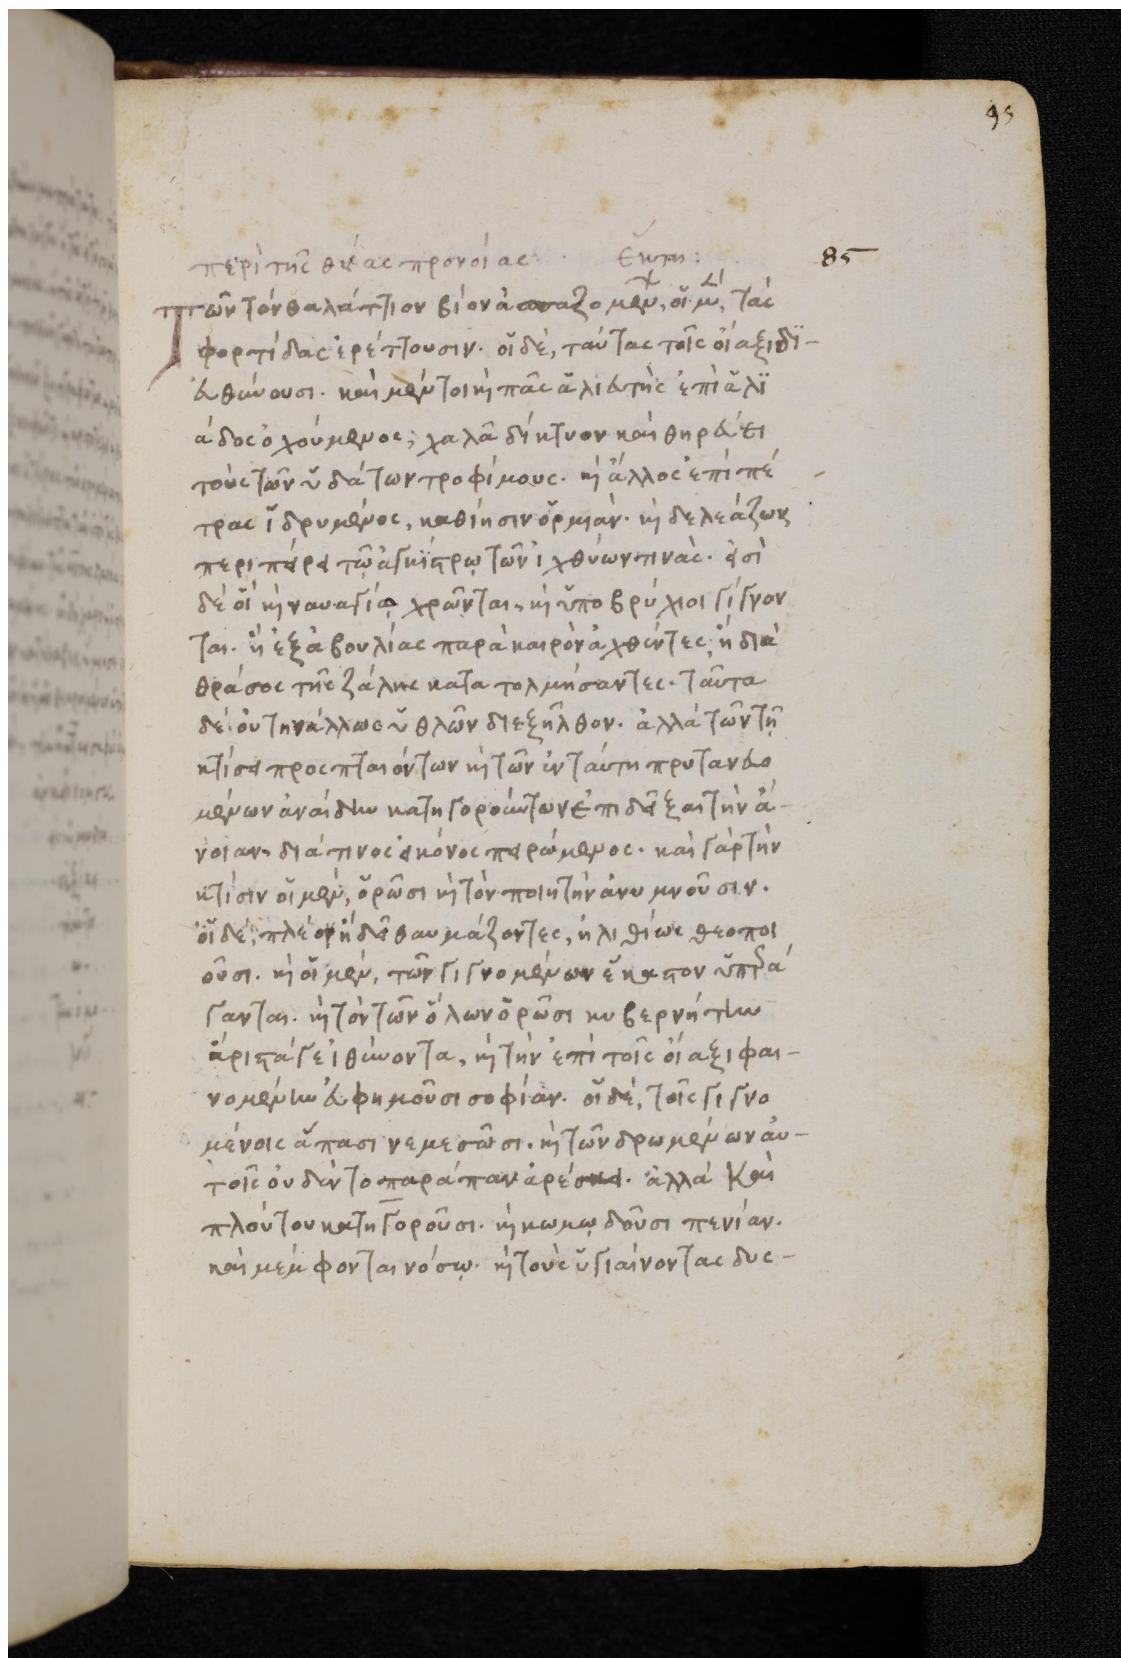 95
περὶ τῆς θείας προνοίας ἕκτη: 85
Τῶν τὸν θαλάττιον βίον ἀσπαζομένων, οἱ μὲν, τὰς
φορτίδας ἐρέττουσιν· οἱ δὲ, ταύτας τοῖς οἴαξι δι-
ευθύνουσι. καὶ μέντοι καὶ πᾶς ἁλιευτὴς ἐπὶ ἁλϊ
άδος ὀχούμενος, χαλᾶ δίκτυον καὶ θηρεύει
τοὺς τῶν ὑδάτων τροφίμους. καὶ ἄλλος ἐπὶ πέ
τρας ἱδρυμένος, καθίησιν ὁρμιάν. καὶ δελεάζων
περιπείρει τῷ ἀγκίστρῳ τῶν ἰχθύων τινάς. εἰσὶ
δὲ οἳ καὶ ναυαγίᾳ χρῶνται, καὶ ὑποβρύχιοι γίγνον
ται. ἢ ἐξ ἀβουλίας παρὰ καιρὸν ἀχθέντες, ἢ διὰ
θράσος τῆς ζάλης κατατολμήσαντες. ταῦτα
δὲ οὐ τηνάλλως ὑθλῶν διεξῆλθον. ἀλλὰ τῶν τῇ
κτίσει προσπταιόντων καὶ τῶν ἐν ταύτῃ πρυτανευο
μένων ἀναίδην κατηγορούντων ἐπιδεῖξαι τὴν ἄ-
νοιαν, διά τινος εἰκόνος πειρώμενος. καὶ γὰρ τὴν
κτίσιν οἱ μὲν, ὁρῶσι καὶ τὸν ποιητὴν ἀνυμνοῦσιν.
οἱ δὲ, πλέον ἢ δεῖ θαυμάζοντες, ἠλιθίως θεοποι
οῦσι. καὶ οἱ μὲν, τῶν γιγνομένων ἕκαστον ὑπερά
γανται. καὶ τὸν τῶν ὅλων ὁρῶσι κυβερνήτην
ἄριστά γε ἰθύνοντα, καὶ τὴν ἐπὶ τοῖς οἴαξι φαι-
νομένην εὐφημοῦσι σοφίαν. οἱ δὲ, τοῖς γιγνο
μένοις ἅπασι νεμεσῶσι. καὶ τῶν δρωμένων αὐ-
τοῖς οὐδὲν τοπαράπαν ἀρέσκει. ἀλλὰ καὶ
πλούτου κατηγοροῦσι. καὶ κωμῳδοῦσι πενίαν.
καὶ μέμφονται νόσῳ. καὶ τοὺς ὑγιαίνοντας δυς-